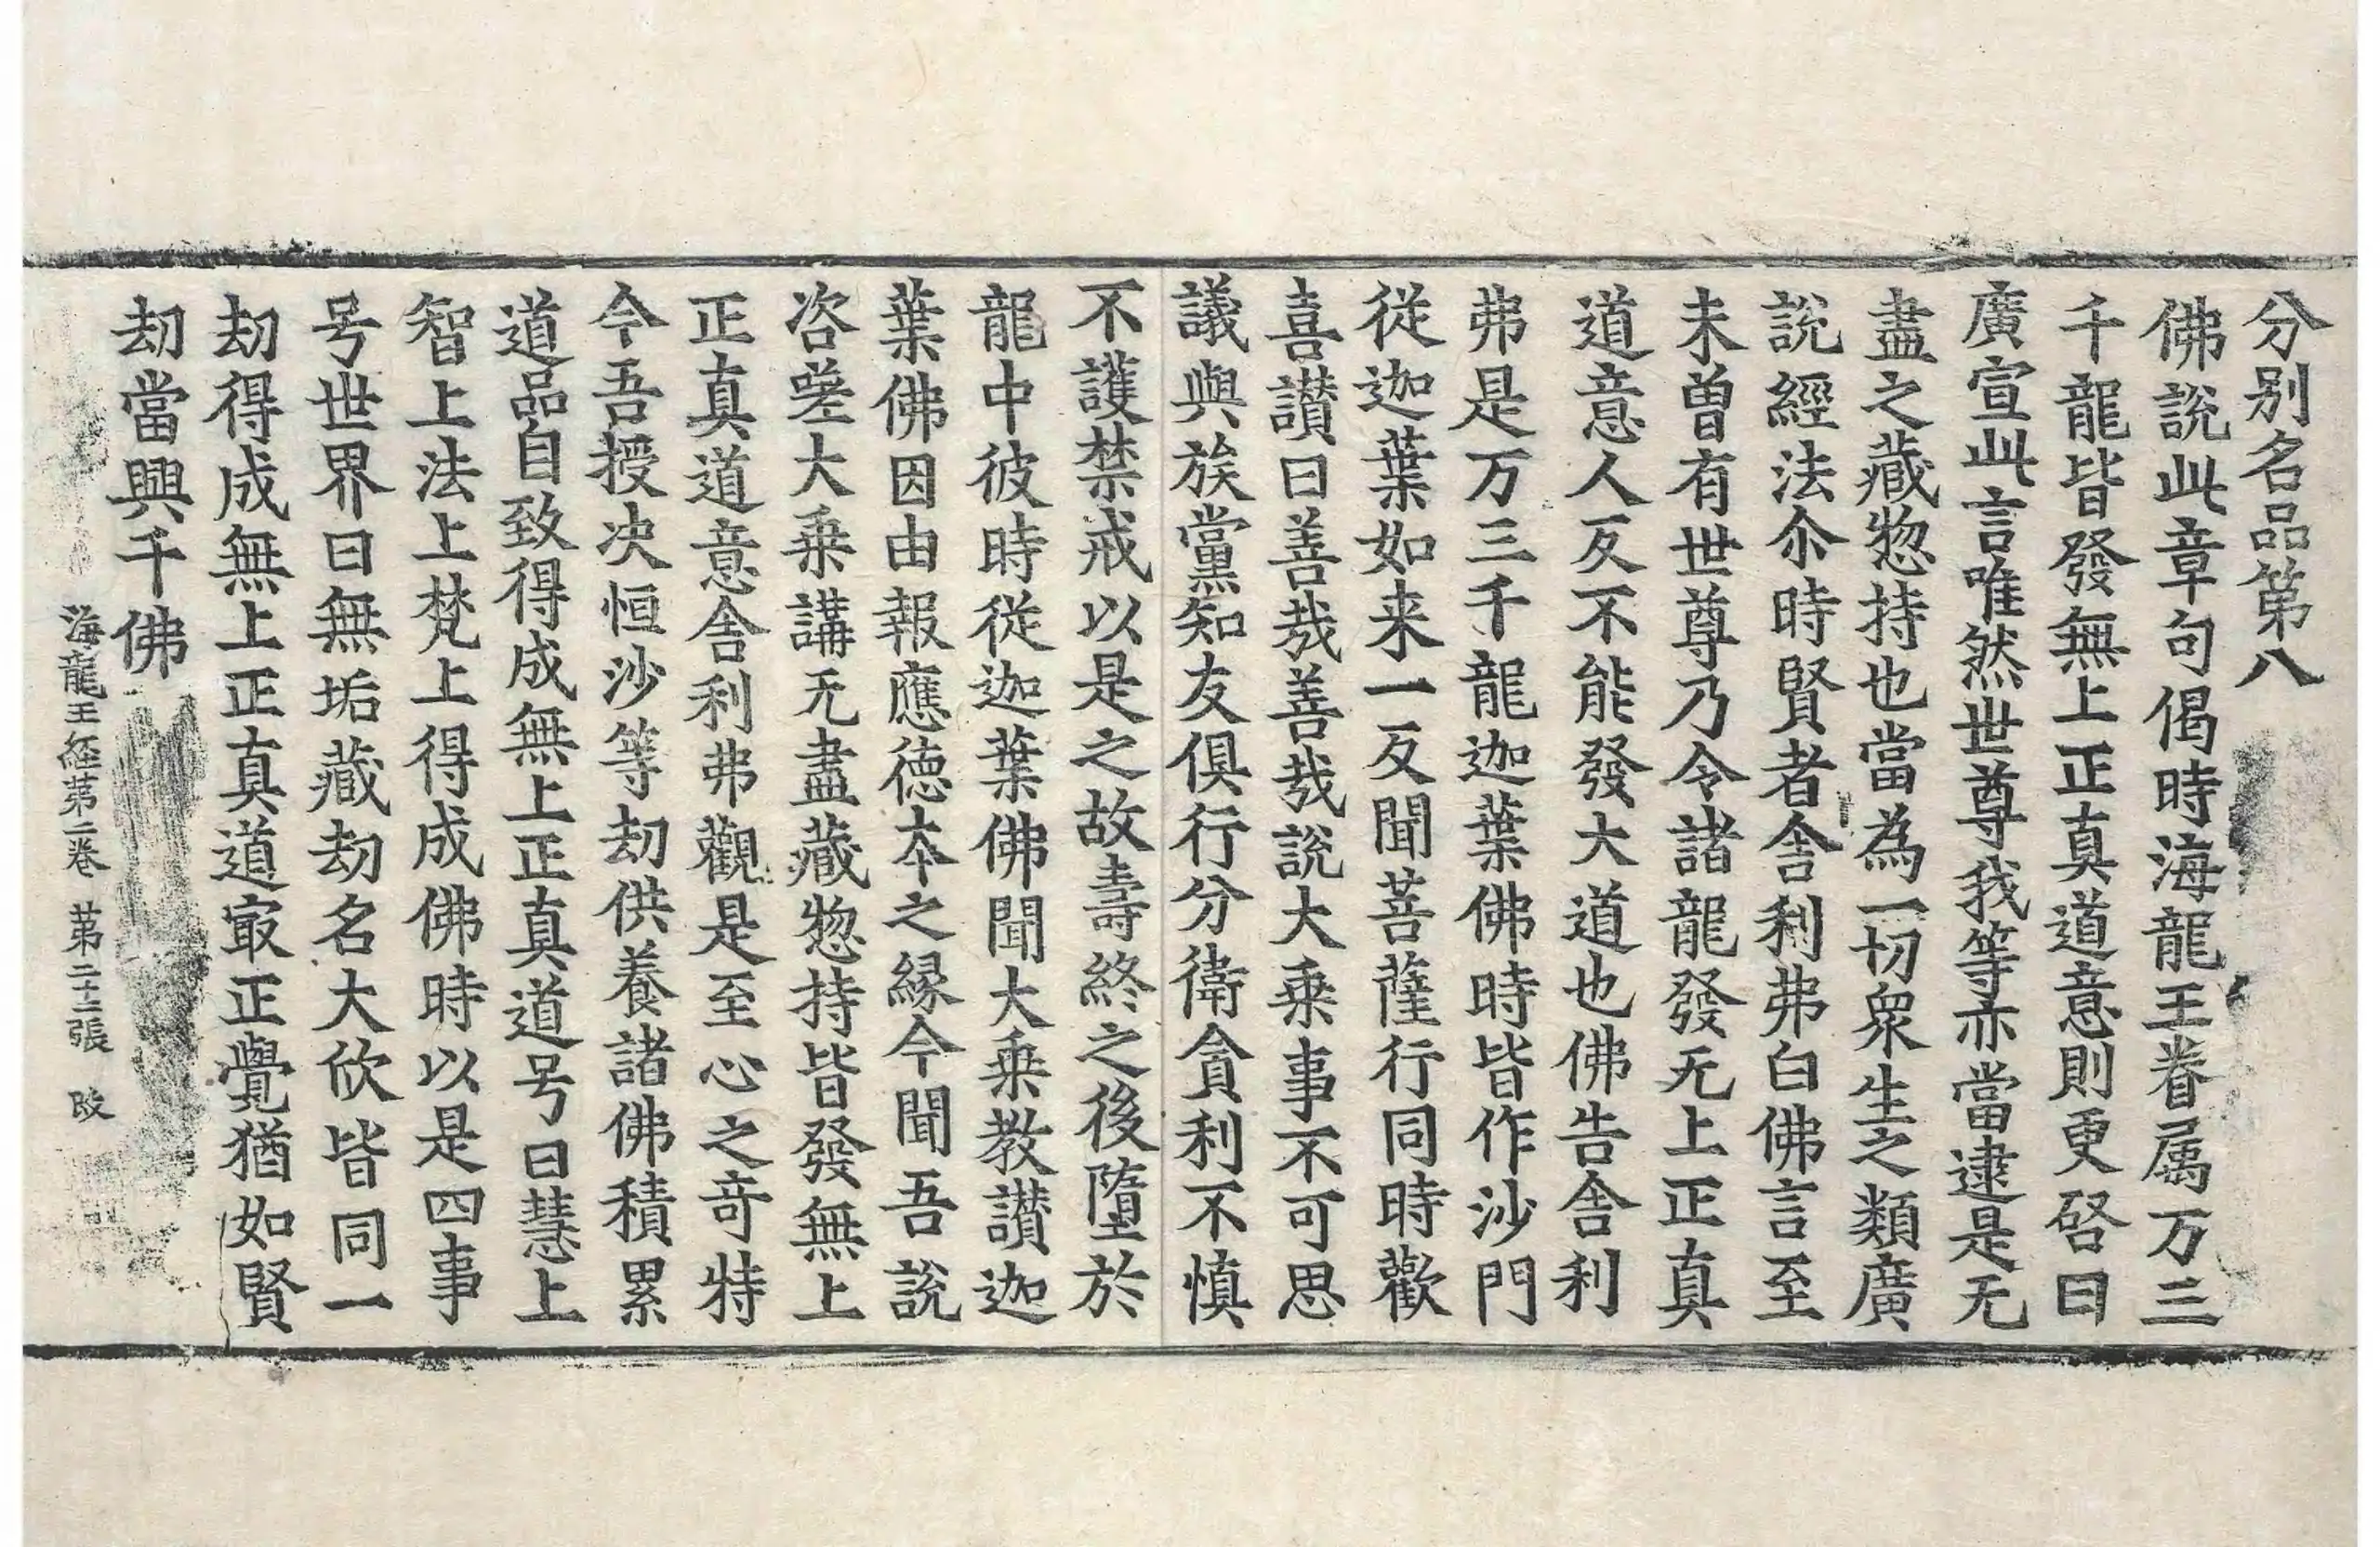 分别名品第八
佛說此章句偈時海龍王眷属万三
千龍皆發無上正真道意則更啓曰
廣宣此言唯然世尊我等亦當逮是无
盡之藏惣持也當為一切衆生之類廣
說經法尒時賢者舍利弗白佛言至
未曽有世尊乃令諸龍發无上正真
道意人反不能發大道也佛告舍利
弗是万三千龍迦葉佛時皆作沙門
從迦葉如来一反聞菩薩行同時歡
喜讃曰善哉善哉說大乗事不可思
議與族黨知友俱行分衛貪利不慎
不護禁戒以是之故壽終之後墮於
龍中彼時從迦葉佛聞大乗教讃迦
葉佛因由報應德夲之縁今聞吾說
咨嗟大乗講无盡藏惣持皆發無上
正真道意舍利弗觀是至心之奇特
今吾授决恒沙等劫供養諸佛積累
道品自致得成無上正真道号曰慧上
智上法上梵上得成佛時以是四事
号世界曰無垢藏劫名大欣皆同一
劫得成無上正真道㝡正覺猶如賢
劫當興千佛
海龍王經第二卷 第二十二張 改